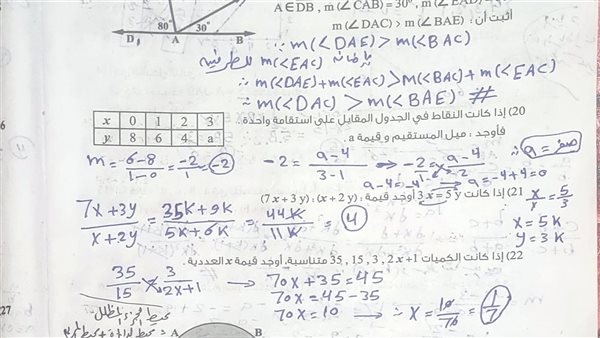 A∈DB , m(∠CAB) = 30° , m(∠EAD)
أثبت أن : m(∠DAC) > m(∠BAE)
80° 30°
D A B
∵ m(<DAE) > m(<BAC)
m(<EAC) للطرفين
∴ m(<DAE)+m(<EAC) > m(<BAC) + m(<EAC)
∴ m(<DAC) > m(<BAE) #
20) إذا كانت النقاط في الجدول المقابل على استقامة واحدة.
فأوجد : ميل المستقيم و قيمة a.
x 0 1 2 3
y 8 6 4 a
m = -6-8 / 1-0 = -2/1 = -2
-2 = a-4 / 3-1 → -2/1 = a-4 / 2
∴ a = صفر
a-4=-4 → a=-4+4=0
21) إذا كانت 3x = 5y أوجد قيمة : (7x + 3y) : (x + 2y)
x/y = 5/3
x = 5k
y = 3k
7x+3y / x+2y = 35k+9k / 5k+6k = 44k / 11k = 4
22) إذا كانت الكميات 2x+1 , 3 , 15 , 35 متناسبة. أوجد قيمة x العددية.
35/15 3/2x+1 → 70x+35=45
70x=45-35
70x=10 → ∴ x = 10/70 = 1/7
27
A B